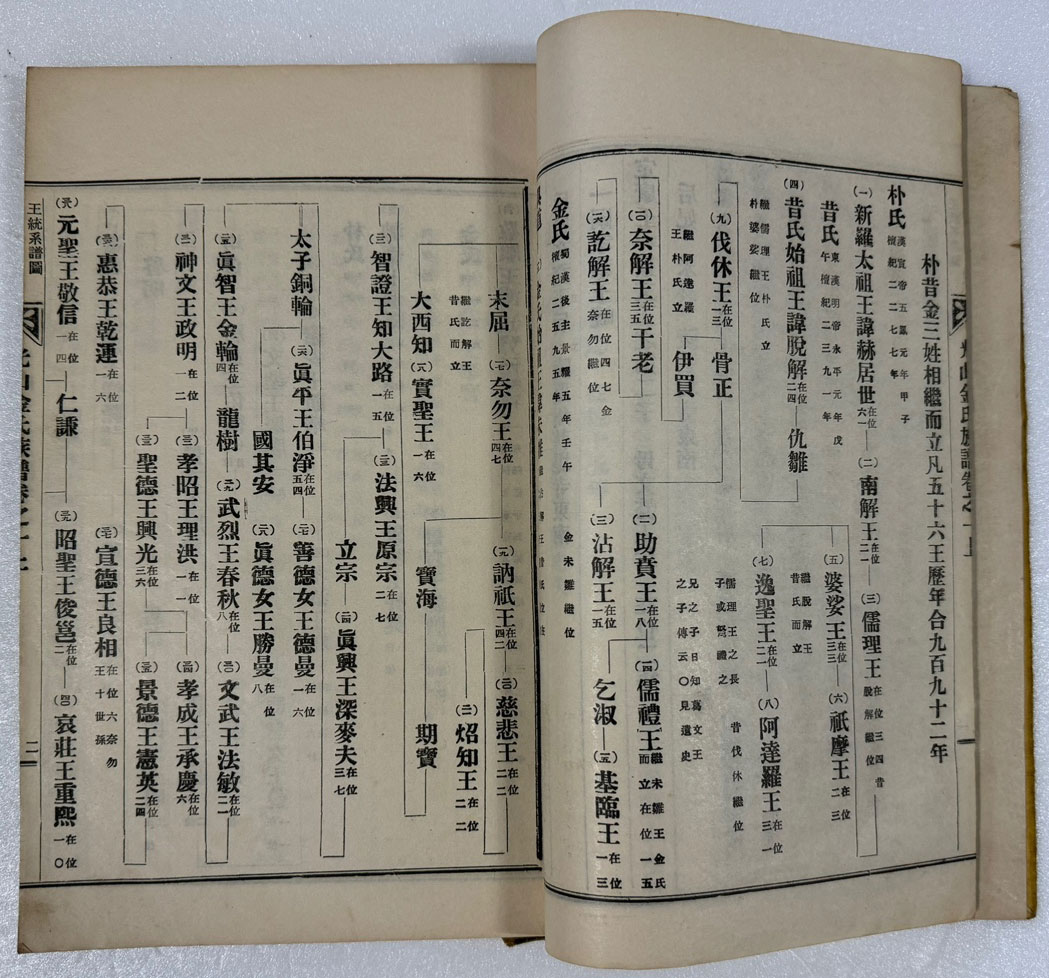 朴昔金三姓相繼而立凡五十六王歷年合九百九十二年
朴氏 漢宣帝五鳳元年甲子 檀紀二二七七年
(一)新羅太祖王諱赫居世 在位六一
(二)南解王 在位二一
(三)儒理王 在位三四昔脫解繼位
昔氏 東漢明帝永平元年戊午檀紀二三九一年
(五)婆娑王 在位三三
繼脫解王昔氏而立
(六)祇摩王 在位二三
(四)昔氏始祖王諱脫解 在位二四
仇雛
(七)逸聖王 在位二一
儒理王之長子或駑禮之
兄之子日知葛文王之子傳云〇見遺史
(八)阿達羅王 在位三一
昔伐休繼位
繼儒理王朴氏立
朴婆娑繼位
(九)伐休王 在位一三
繼阿達羅王朴氏立
骨正
伊買
(二)助賁王 在位一八
(四)儒禮王 在位一五
繼未雛王金氏而立
(一〇)奈解王 在位三五
于老
(三)沾解王 在位一五
乞淑
(五)基臨王 在位一三
(六)訖解王 在位四七金奈勿繼位
金氏 蜀漢後主景耀五年壬午檀紀二五九五年
金未雛繼位
末屈
(七)奈勿王 在位四七
繼訖解王昔氏而立
(元)訥祇王 在位四二
(三)慈悲王 在位二二
(三)炤知王 在位二二
大西知
(六)實聖王 在位一六
寶海
期寶
(三)智證王知大路 在位一五
(三)法興王原宗 在位二七
立宗
(四)眞興王深麥夫 在位三七
太子銅輪
(六)眞平王伯淨 在位五四
(七)善德女王德曼 在位一六
國其安
(六)眞德女王勝曼 在位八
(五)眞智王金輪 在位四
龍樹
(元)武烈王春秋 在位八
(三)文武王法敏 在位二一
(三)神文王政明 在位一二
(三)孝昭王理洪 在位一一
(四)孝成王承慶 在位六
(三)聖德王興光 在位三六
(五)景德王憲英 在位二四
(六)惠恭王乾運 在位一六
(七)宣德王良相 在位六奈勿王十世孫
(六)元聖王敬信 在位一四
仁謙
(元)昭聖王俊邕 在位二
(四)哀莊王重熙 在位一〇
王統系譜圖
光山金氏族譜卷之一上
二